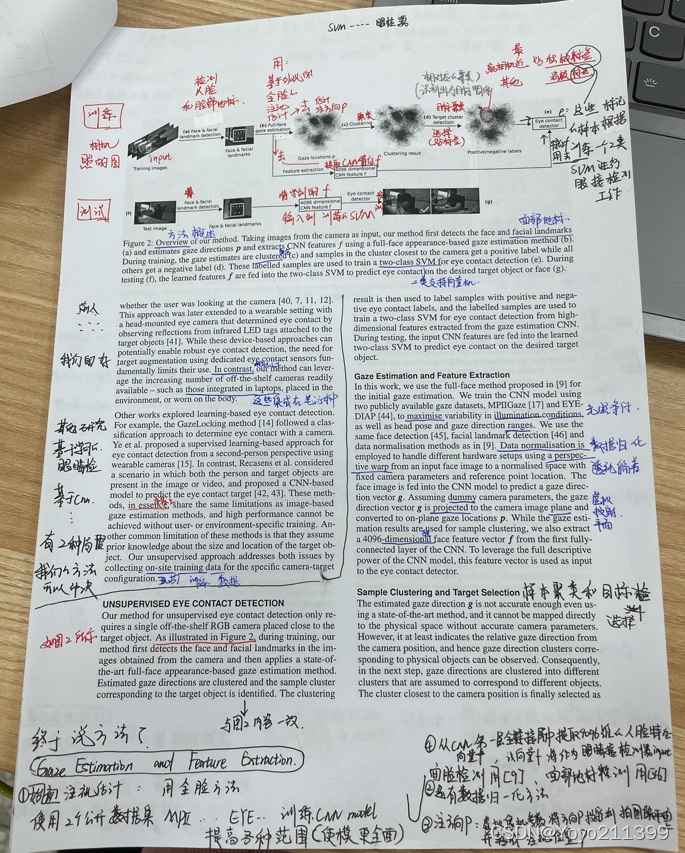 SVM ---- 眼检器
训练
相机照的图
检测
人脸
和脸部地标
用:
全脸
聚类
选择
最
其他
input
Training images
Face & facial
landmark detection
(a)
Face & facial
landmarks
(b) Full-face
gaze estimation
Gaze locations p
(c) Clustering
Clustering result
(d) Target cluster
selection
Positive/negative labels
(e)
Eye contact
detector
Feature extraction
4096 dimensional
CNN feature f
SVM 进行
眼接检测
工作
测试
(f)
Test image
Face & facial
landmark detection
Face & facial
landmarks
4096 dimensional
CNN feature f
Eye contact
detector
(g)
方法概述
面部地标
Figure 2: Overview of our method. Taking images from the camera as input, our method first detects the face and facial landmarks
(a) and estimates gaze directions p and extracts CNN features f using a full-face appearance-based gaze estimation method (b).
During training, the gaze estimates are clustered (c) and samples in the cluster closest to the camera get a positive label while all
others get a negative label (d). These labelled samples are used to train a two-class SVM for eye contact detection (e). During
testing (f), the learned features f are fed into the two-class SVM to predict eye contact on the desired target object or face (g).
二类支持向量机
whether the user was looking at the camera [40, 7, 11, 12].
This approach was later extended to a wearable setting with
a head-mounted eye camera that determined eye contact by
observing reflections from infrared LED tags attached to the
target objects [41]. While these device-based approaches can
potentially enable robust eye contact detection, the need for
target augmentation using dedicated eye contact sensors fun-
damentally limits their use. In contrast, our method can lever-
age the increasing number of off-the-shelf cameras readily
available – such as those integrated in laptops, placed in the
environment, or worn on the body.
这些集成在笔记本中
Other works explored learning-based eye contact detection.
For example, the GazeLocking method [14] followed a clas-
sification approach to determine eye contact with a camera.
Ye et al. proposed a supervised learning-based approach for
eye contact detection from a second-person perspective using
wearable cameras [15]. In contrast, Recasens et al. considered
a scenario in which both the person and target objects are
present in the image or video, and proposed a CNN-based
model to predict the eye contact target [42, 43]. These meth-
ods, in essence, share the same limitations as image-based
gaze estimation methods, and high performance cannot be
achieved without user- or environment-specific training. An-
other common limitation of these methods is that they assume
prior knowledge about the size and location of the target ob-
ject. Our unsupervised approach addresses both issues by
collecting on-site training data for the specific camera-target
configuration.
我们的方法
可以解决
UNSUPERVISED EYE CONTACT DETECTION
Our method for unsupervised eye contact detection only re-
quires a single off-the-shelf RGB camera placed close to the
target object. As illustrated in Figure 2, during training, our
method first detects the face and facial landmarks in the im-
ages obtained from the camera and then applies a state-of-
the-art full-face appearance-based gaze estimation method.
Estimated gaze directions are clustered and the sample cluster
corresponding to the target object is identified. The clustering
如图2所示
与图2内容一致.
result is then used to label samples with positive and nega-
tive eye contact labels, and the labelled samples are used to
train a two-class SVM for eye contact detection from high-
dimensional features extracted from the gaze estimation CNN.
During testing, the input CNN features are fed into the learned
two-class SVM to predict eye contact on the desired target
object.
Gaze Estimation and Feature Extraction
In this work, we use the full-face method proposed in [9] for
the initial gaze estimation. We train the CNN model using
two publicly available gaze datasets, MPIIGaze [17] and EYE-
DIAP [44], to maximise variability in illumination conditions,
as well as head pose and gaze direction ranges. We use the
same face detection [45], facial landmark detection [46] and
data normalisation methods as in [9]. Data normalisation is
employed to handle different hardware setups using a perspec-
tive warp from an input face image to a normalised space with
fixed camera parameters and reference point location. The
face image is fed into the CNN model to predict a gaze di-
rection vector g. Assuming dummy camera parameters, the gaze
direction vector g is projected to the camera image plane and
converted to on-plane gaze locations p. While the gaze esti-
mation results are used for sample clustering, we also extract
a 4096-dimensional face feature vector f from the first fully-
connected layer of the CNN. To leverage the full descriptive
power of the CNN model, this feature vector is used as input
to the eye contact detector.
光照条件
数据归一化
虚拟
投射
平面
Sample Clustering and Target Selection 样本聚类和目标选择
The estimated gaze direction g is not accurate enough even us-
ing a state-of-the-art method, and it cannot be mapped directly
to the physical space without accurate camera parameters.
However, it at least indicates the relative gaze direction from
the camera position, and hence gaze direction clusters corre-
sponding to physical objects can be observed. Consequently,
in the next step, gaze directions are clustered into different
clusters that are assumed to correspond to different objects.
The cluster closest to the camera position is finally selected as
终于说方法了
Gaze Estimation and Feature Extraction.
①初始注视估计: 用全脸方法
使用2个公开数据集 MPII... EYE... 训练CNN model
提高各种范围(使模更全面)
面脸检测用[45], 面部地标检测用[46]
②还有数据归一化方法
CSDN@yoyo211399